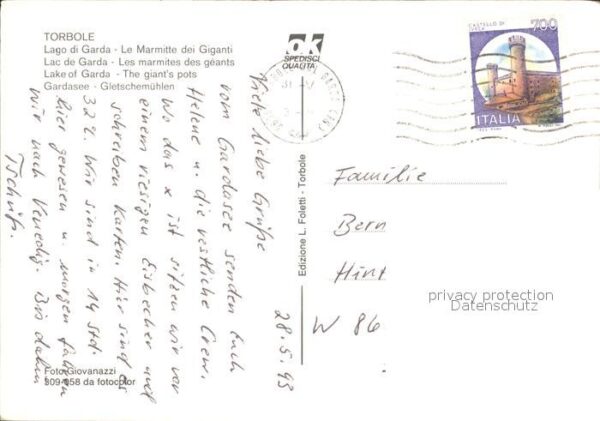 TORBOLE
Lago di Garda - Le Marmitte dei Giganti
Lac de Garde - Les marmites des géants
Lake of Garda - The giant's pots
Gardasee - Gletschemühlen
ok
SPEDISCI
QUALITÀ
CASTELLO DI
IVREA
700
ITALIA
Viele liebe Grüße
vom Gardasee senden Euch
Helene u. die restliche Crew.
Wo das x ist sitzen wir vor
einem riesigen Eisbecher und
schreiben Karten. Hier sind es
32°C. Wir sind in 14 Std.
hier gewesen u. morgen fahren
wir nach Venedig. Bis dahin
Tschüß.
28.5.93
Edizione L. Foletti - Torbole
Familie
Bern
Hint
W 86
privacy protection
Datenschutz
Foto Giovanazzi
309-058 da fotocolor